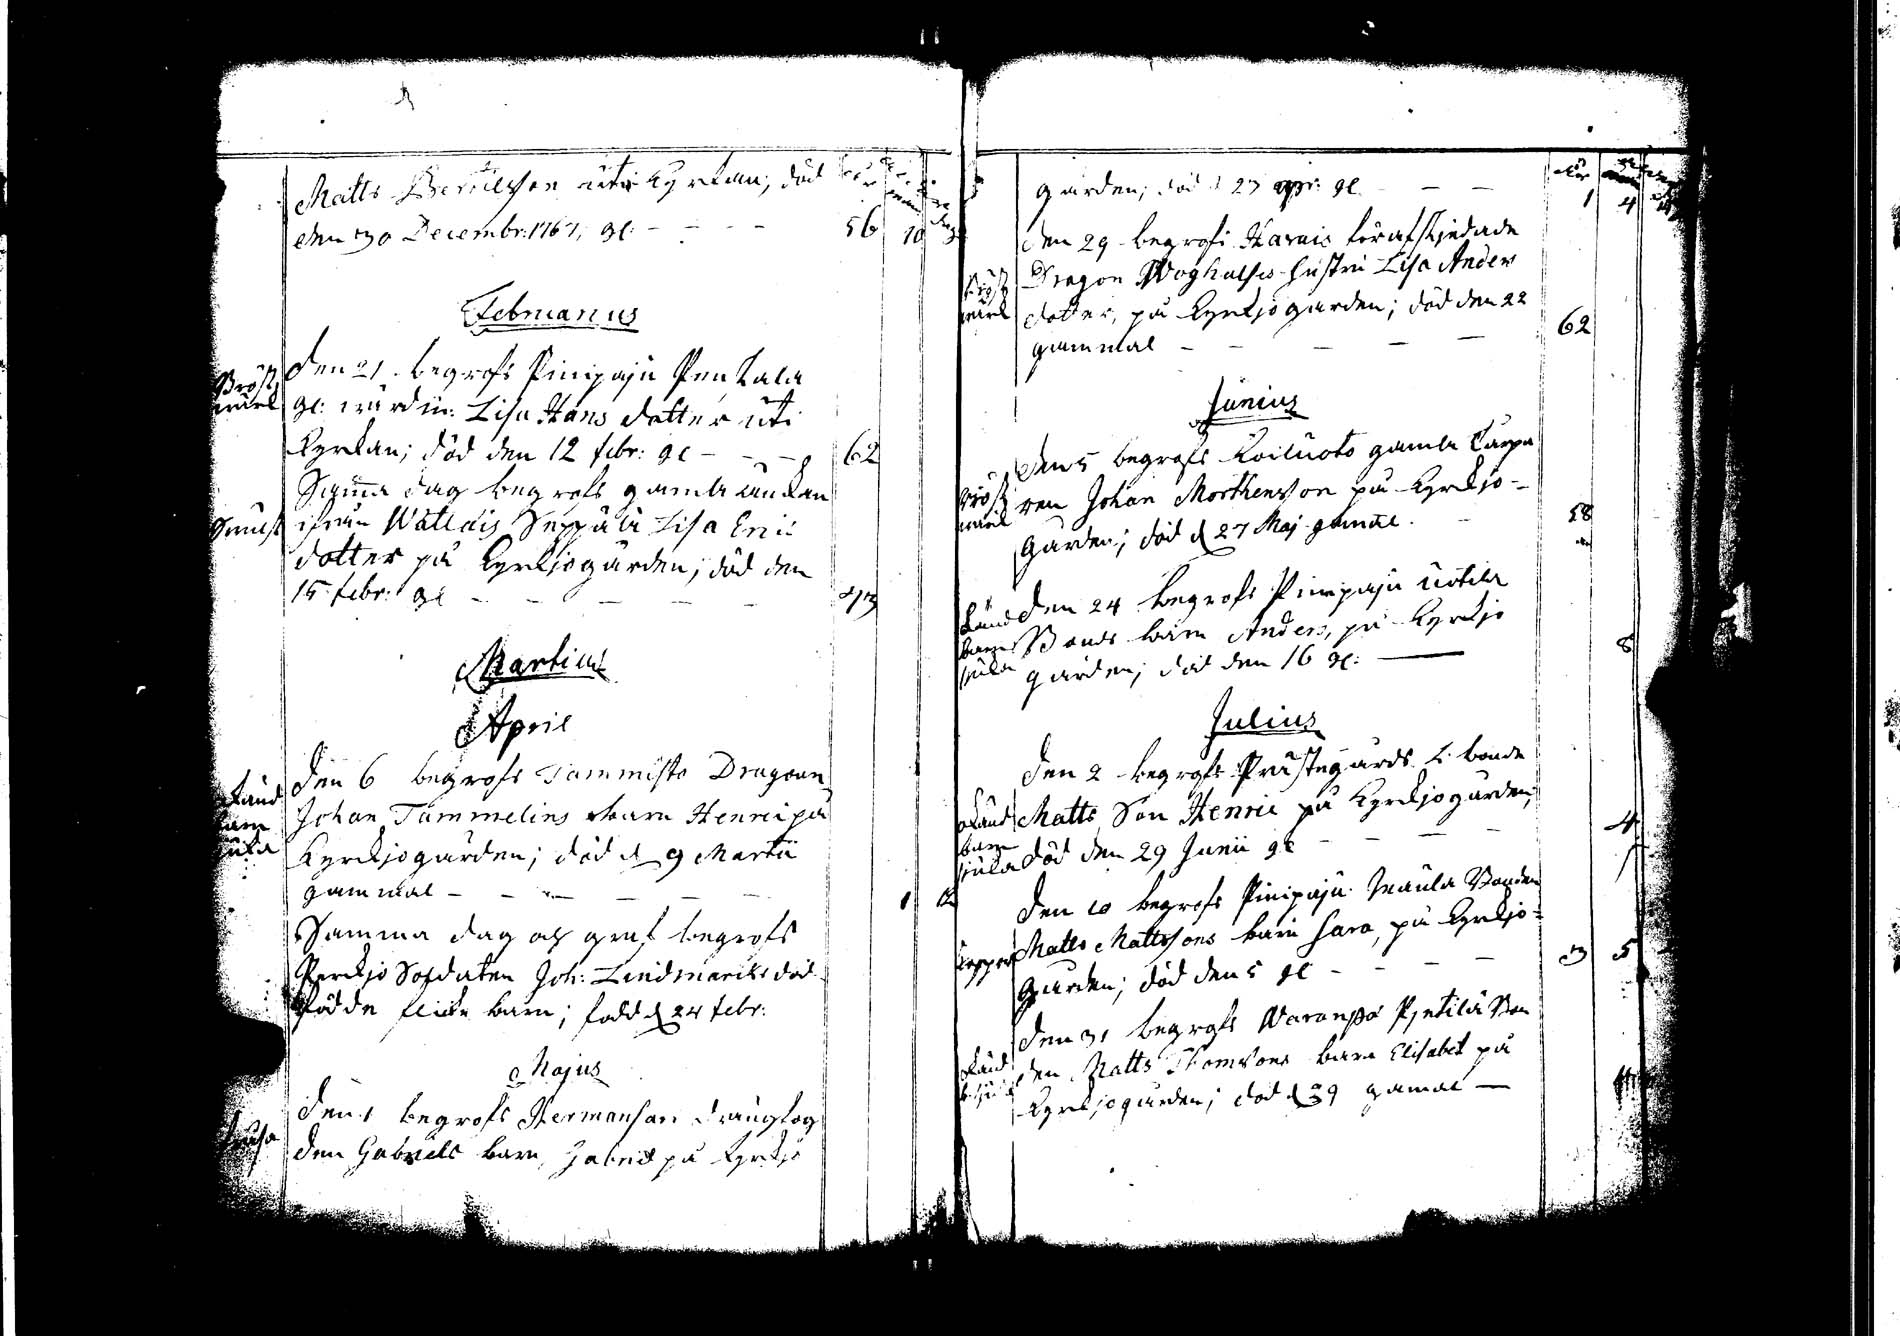 Matts Bertilsson uti Kyrkan, död
den 30 Decembr: 1767, gl: 56 10
Februarius
Bröst
wärk
den 21. begrofs Pinipaju Penkala
gl: wärdin: Lisa Hans dotter uti
Kyrkan; död den 12 febr: gl 62
Samma dag begrofs gamla änkan
ifrån Wätläis Seppälä Lisa Eric
dotter på Kyrkjogården, död den
15 febr: gl 43
Martius
April
den 6 begrofs Tammisto Dragoun
Johan Tammelins barn Henric på
Kyrckjogården; död d 9 Martii
gammal 1 12
Samma dag och graf begrofs
Perckjo Soldaten Joh: Lindmarks död
födde flicke barn; född d 24 febr:
Majus
den 1 begrofs Hermansari
den Gabriels barn, Gabriel på Kyrckjo
gården; död d 27 apr: gl 1 4
den 29 begrofs Harvis förafskjedade
Dragon Woghalses hustru Lisa Anders
dotter, på Kyrckjogården; död den 22
gammal 62
Bröst
wärk
Junius
den 5 begrofs Koiluoto gamla
ren Johan Morthensson på Kyrckjo-
Gården; död d 27 Maj gamal 58
Bröst
wärk
den 24 begrofs Pinipaju Uotila
Bonds barn Anders, på Kyrckjo
gården; död den 16 gl: 8
barn
sjuka
Julius
den 2 begrofs Prästegårds L. bonde
Matts Son Henric på Kyrckjogården,
död den 29 Junii gl 4
barn
sjuka
den 10 begrofs Pinipaju Inaula Bonden
Matts Mattssons barn Sara, på Kyrckjo-
Gården; död den 5 gl 3 5
Koppor
den 31 begrofs Waranpä Pjetilä Bon
den Matts Thomssons barn Elisabet på
Kyrckjogården; död d 29 gamal